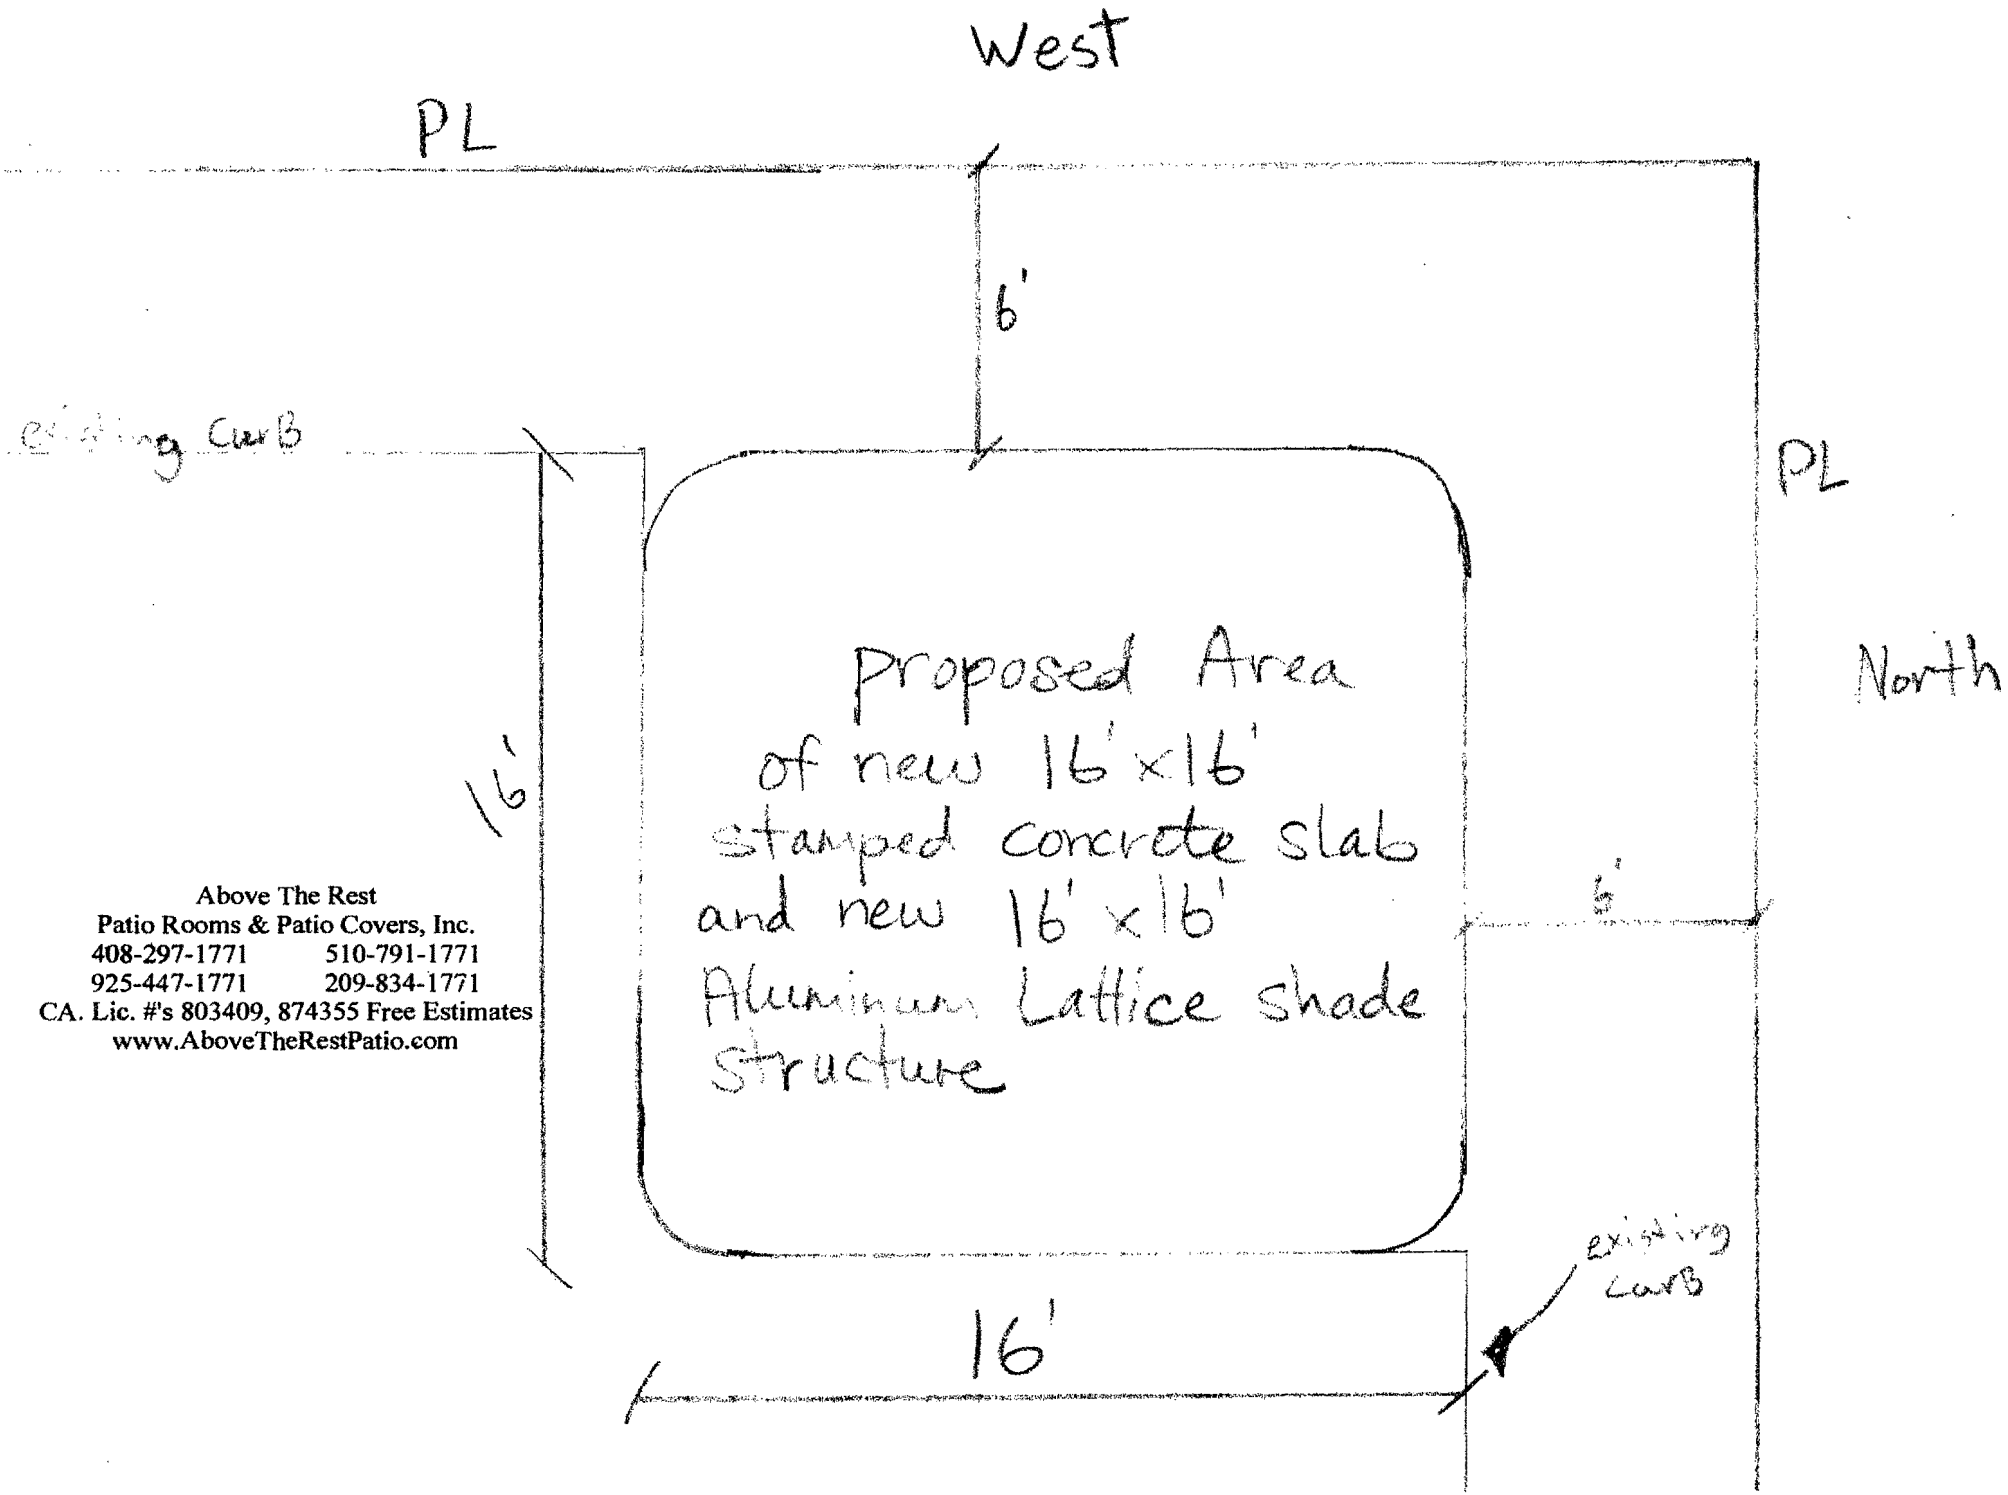 West
PL
6'
existing CurB
PL
proposed Area
of new 16'x16'
stamped concrete slab
and new 16'x16'
Aluminum Lattice shade
structure
North
16'
6'
Above The Rest
Patio Rooms & Patio Covers, Inc.
408-297-1771 510-791-1771
925-447-1771 209-834-1771
CA. Lic. #'s 803409, 874355 Free Estimates
www.AboveTheRestPatio.com
existing
curB
16'